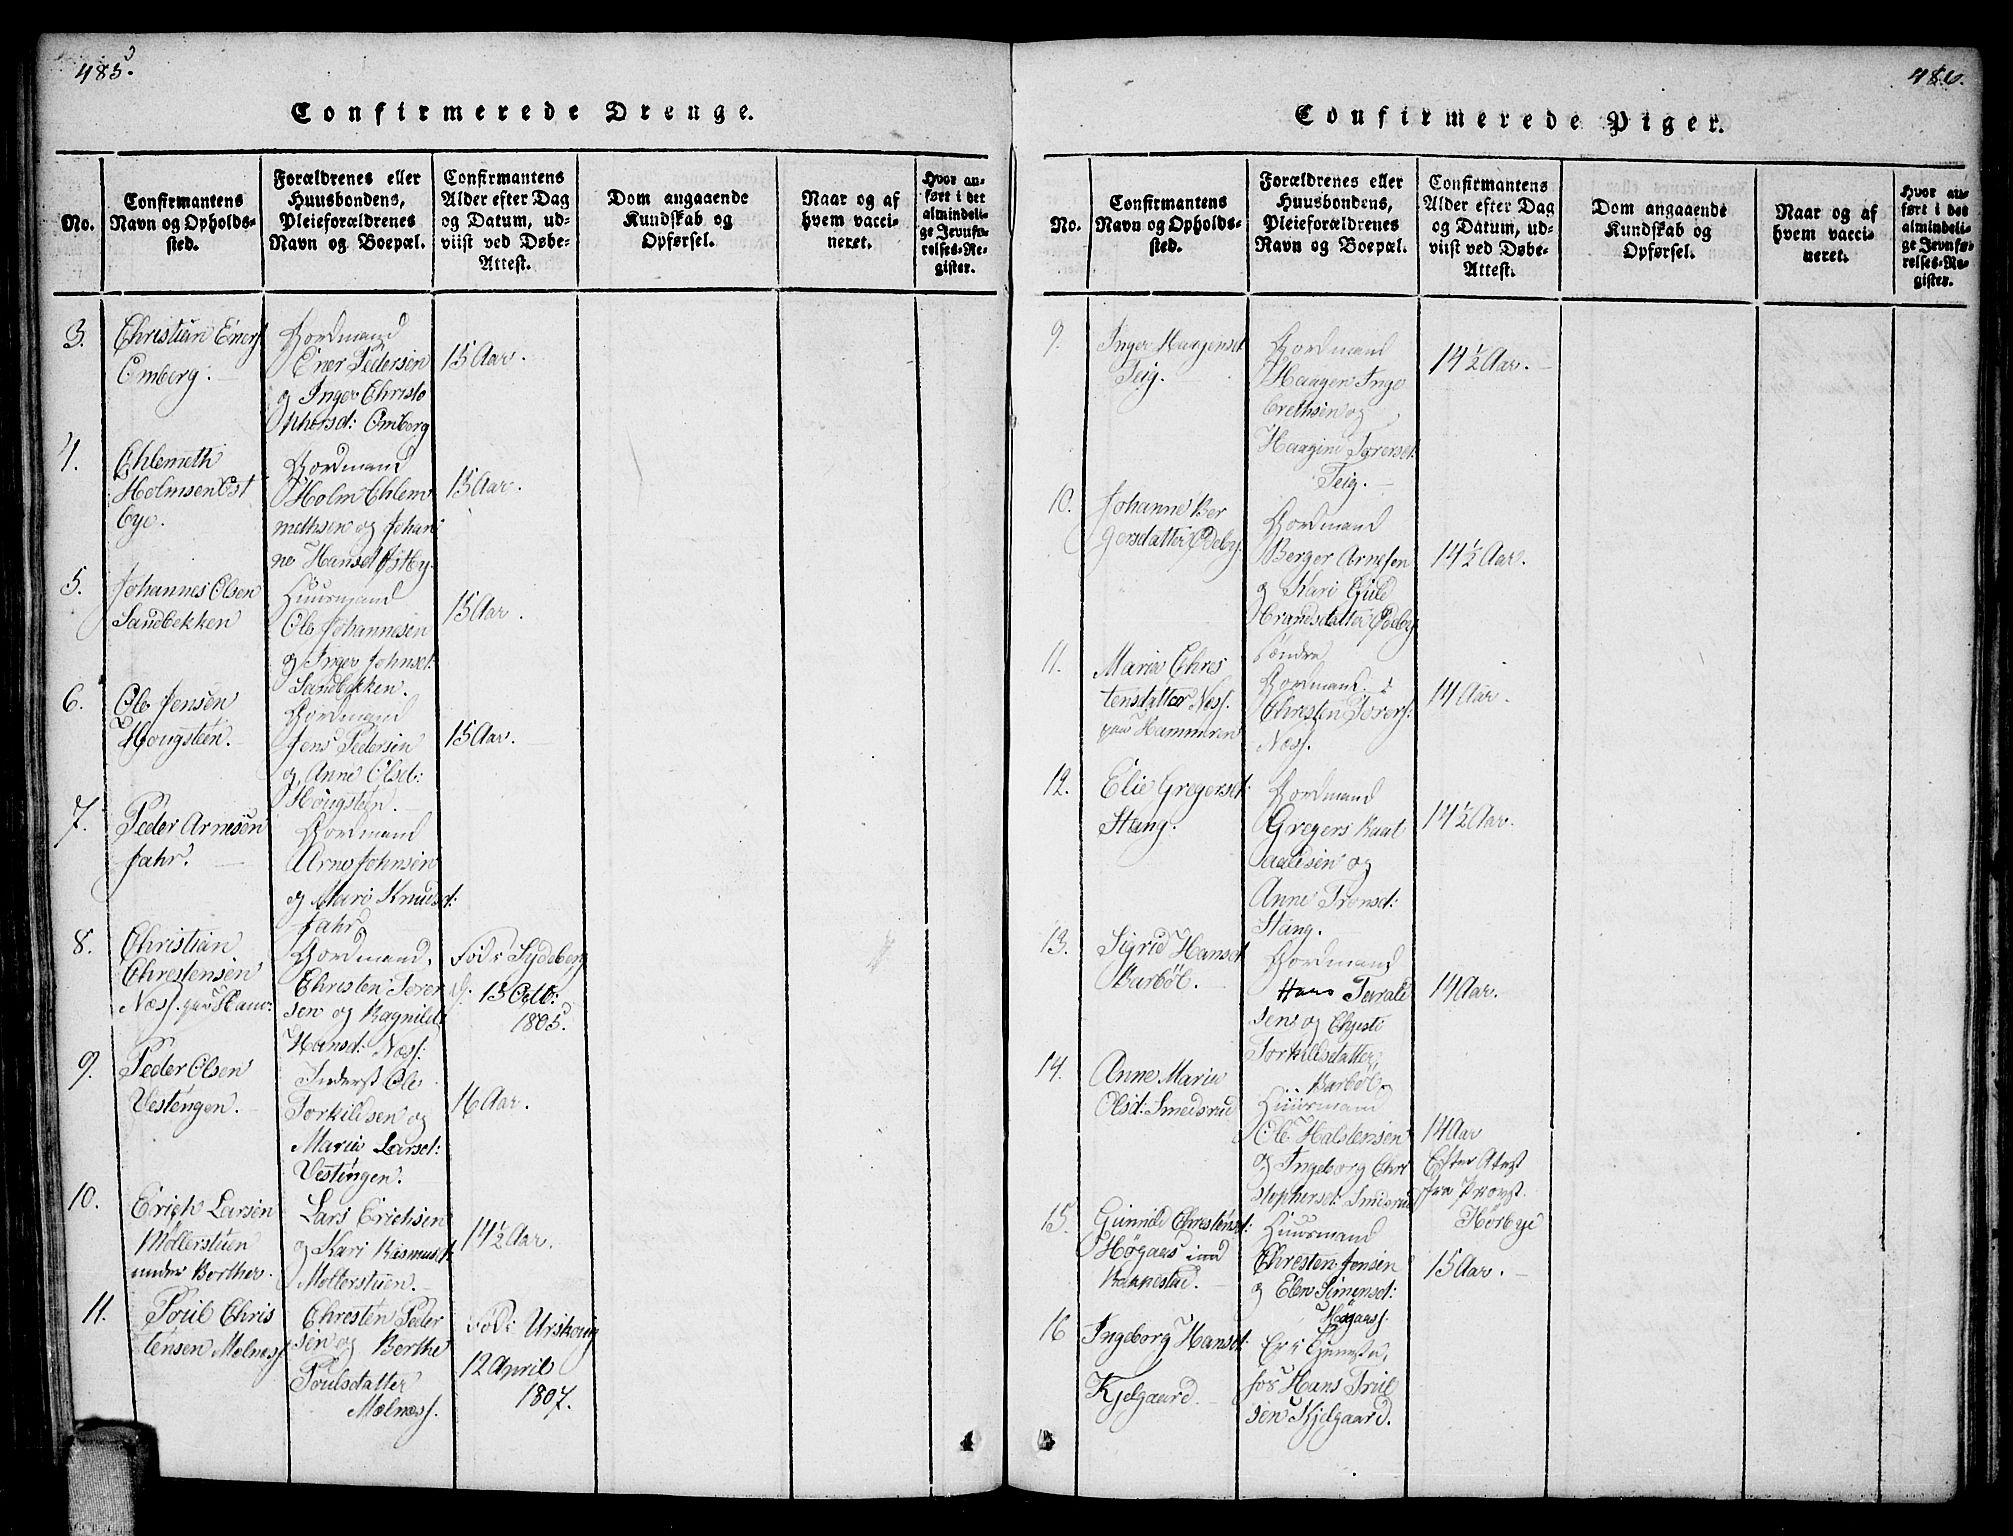 485.
Confirmerede Drenge.
No.
Confirmantens
Navn og Opholds-
sted.
Forældrenes eller
Huusbondens,
Pleieforældrenes
Navn og Boepæl.
Confirmantens
Alder efter Dag
og Datum, ud-
viist ved Døbe-
Attest.
Dom angaaende
Kundskab og
Opførsel.
Naar og af
hvem vacci-
neret.
Hvor an-
ført i det
almindeli-
ge Jevnfø-
relses-Re-
gister.
3.
Christian Eners
Omberg.
Gordmand
Ener Pedersen
og Inger Christo
phersd: Omberg
15 Aar.
4.
Ehlemeth
Holmsen Øst
bye.
Gordmand
Holm Ehlem
methsen og Johan
ne Hansd Østby.
15 Aar.
5.
Johannes Olsen
Sandbekken
Huusmand
Ole Johannesen
og Inger Johnsd:
Sandbekken.
15 Aar.
6.
Ole Jensen
Hougsteen.
Gordmand
Jens Pedersen
og Anne Olsd:
Hougsteen.
15 Aar.
7.
Peder Arnesen
Jahr.
Gordmand
Arne Johnsen
og Mari Knudsd:
Jahr
8.
Christian
Chrestensen
Næss. paa Ham:
Gordmand,
Christen Torer
sen og Ragnild
Hansd: Næss:
Fød i Rydeberg
d. 15 Octb:
1805.
9.
Peder Olsen
Vestengen.
Inderst Ole
Torkildsen og
Maria Larsd:
Vestengen.
16 Aar.
10.
Erich Larsen
Møllerstuen
under Borther.
Lars Erichsen
og Kari Rasmusd.
Møllerstuen.
14½ Aar.
11.
Poul Chris
tensen Molness
Chresten Peder
sen og Berthe
Poulsdatter
Molness.
Fød i Urskoug
12 April
1807.
486.
Confirmerede Piger.
No.
Confirmantens
Navn og Opholds-
sted.
Forældrenes eller
Huusbondens,
Pleieforældrenes
Navn og Boepæl.
Confirmantens
Alder efter Dag
og Datum, ud-
viist ved Døbe-
Attest.
Dom angaaende
Kundskab og
Opførsel.
Naar og af
hvem vacci-
neret.
Hvor an-
ført i det
almindeli-
ge Jevnfø-
relses-Re-
gister.
9.
Inger Haagensd
Teig.
Gordmand
Haagen Inge
brethsen og
Haagine Torersd:
Teig.
14½ Aar.
10.
Johanne Ber
gersdatter Ødeby.
Gordmand
Berger Arnesen
og Kari Guld
brandsdatter Ødeby
søndre
14½ Aar.
11.
Maria Chres
tensdatter Næss.
paa Hammeren
Gordmand
Chresten Torers:
Næss.
14 Aar.
12.
Elie Gregersd.
Stang.
Gordmand
Gregers
og
Anne Tronsd:
Stang.
14½ Aar.
13.
Sigrid Hansd
Barbøl.
Gordmand
Hans Tarald
sen og Chresti
Torkildsdatter
Barbøl.
14 Aar.
14.
Anne Maria
Olsd: Smedsrud
Huusmand
Ole Halstensen
og Ingeborg Chri
stophersd: Smedsrud
14 Aar
Efter Atest
fra Provst.
Hørbye
15.
Gunnild Chrestensd:
Høgaas
Huusmand
Chresten Jensen
og Elen Simensd:
Høgaas.
15 Aar.
16
Ingeborg Hansd:
Kjelgaard.
Er i Tjeneste
hos Hans Truel
sen Kjelgaard.